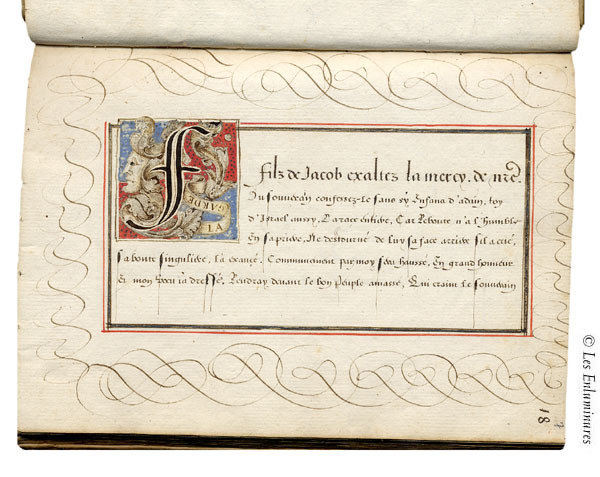 F
GARDE
filz de Jacob exaltez la mercy, de nr̃e
Du souverain confessez-le sans sy Enfans d'adam, toy
d'Israel aussy, La race entiere, Car Reboute n'a l'humble
En sa priere, Ne destourné de luy sa face arriere sil a crié,
sa bonte singuliere, la exaucé, Communement par moy sera hausse, En grand honneur
Et mon voeu ia dressé, Rendray devant le bon peuple amassé, Qui craint le souverain
18
© Les Enluminures